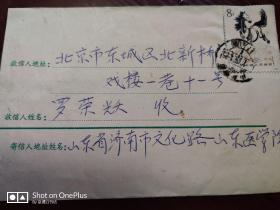 8分
收信人地址:
北京市东城区北新桥
戏楼一巷十一号
收信人姓名:
罗荣 收
寄信人地址姓名:
山东省济南市文化路山东医学
SHOT ON ONEPLUS